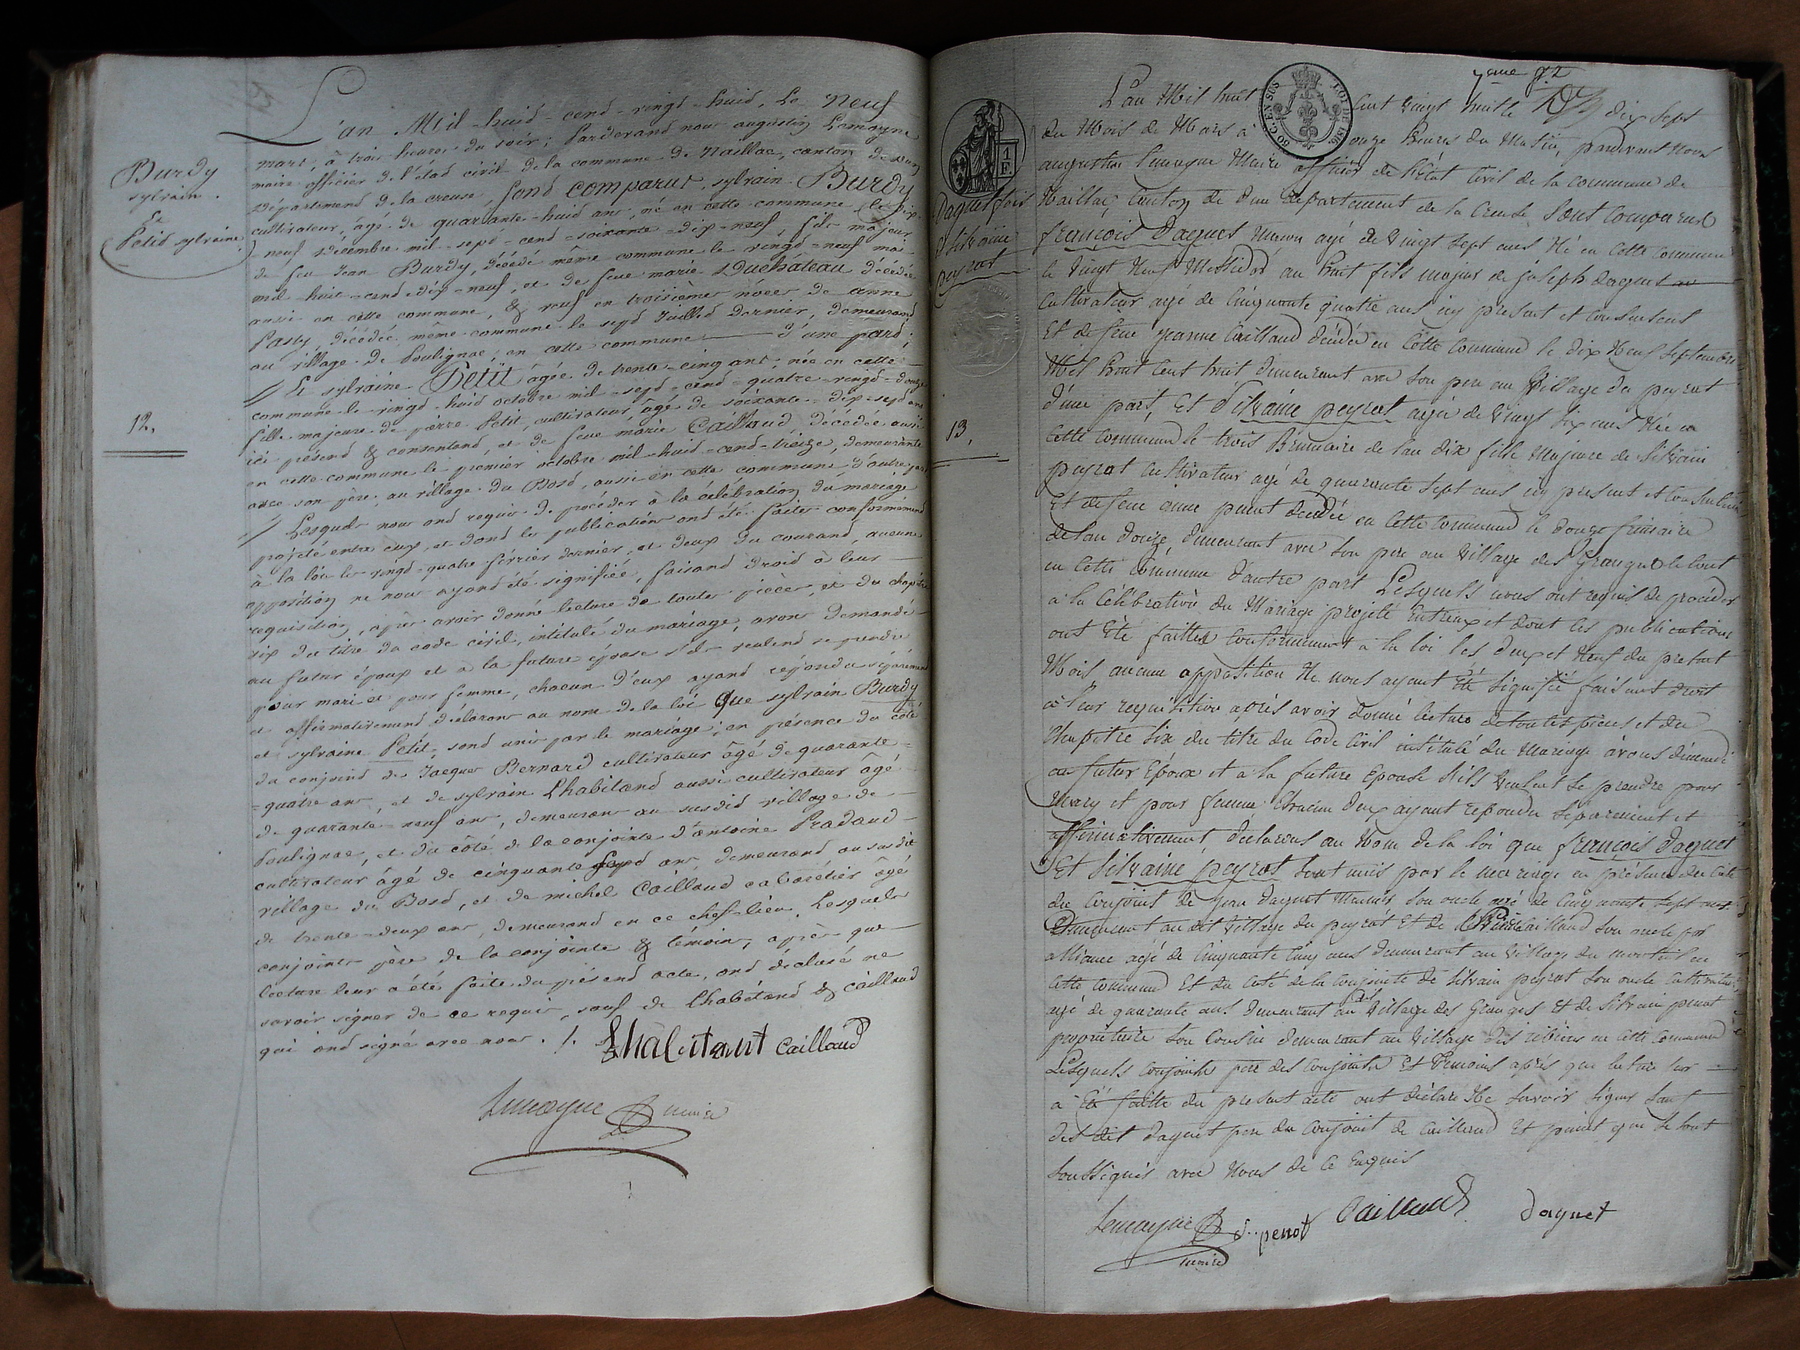 L'an Mil-huid-cend-vingd-huid, Le neuf
mars, à trois heures du soir; Pardevand nous augustin Lemoyne
maire officier de l'étad civil de la commune de Naillac, canton de Dun
Département de la creuse, sond comparus, sylvain Burdy
cultivateur, âgé de quarante-huid ans, né en cette commune, le dix-
neuf Décembre mil-sepd-cend-soixante-dix-neuf, fils majeur
de feu Jean Burdy, décédé même commune le vingd-neuf mai
mil-huid-cend-dix-neuf, et de feue marie Duchâteau décédée
aussi en cette commune, & veuf en troisième nôces de anne
Pasty, décédée même commune le sepd Juilled dernier, demeurand
au village de Poulignac, en cette commune d'une pard;
Et sylvaine Petit, âgée de trente-cinq ans, née en cette
commune le vingd-huid octobre mil-sepd-cend-quatre-vingd-douze
fille majeure de pierre Petit, cultivateur, âgé de soixante-dix-sepd ans
ici présend & consentand, et de feue marie Caillaud, décédée aussi
en cette commune le premier octobre mil-huid-cend-treize, demeurante
avec son père, au village du Bosd, aussi en cette commune d'autre pard
Lesquels nous ond requis de procéder à la célébration du mariage
projeté entre eux, et dond les publications ond été faites conformémend
à la loi les vingd-quatre février dernier, et deux du courand, aucune
opposition ne nous ayand été signifiée, faisand droid à leur
requisition, après avoir donné lecture de toutes pièces, et du chapitre
six du titre du code civil, intitulé du mariage, avons demandé
au futur époux et à la future épouse s'ils veulend se prendre
pour mari et pour femme, chacun d'eux ayand repondu séparémend
et affirmativemend, déclarons au nom de la loi que sylvain Burdy
et sylvaine Petit, sond unis par le mariage; en présence du côté
du conjoind de Jacques Bernard cultivateur âgé de quarante-
=quatre ans, et de sylvain Lhabitand aussi cultivateur âgé
de quarante-neuf ans, demeurans au susdid village de
Poulignac, et du côté de la conjointe d'antoine Pradaud
cultivateur âgé de cinquante sepd ans demeurand au susdit
village du Bosd, et de michel Caillaud cabaretier âgé
de trente-deux ans, demeurand en ce chef-lieu. Lesquels
conjoints père de la conjointe & témoins, après que
lecture leur a été faite du présend acte, ond déclaré ne
savoir signer de ce requis, sauf de Lhabitand & Caillaud
qui ond signé avec nous ./.
Lhabitant Caillaud
Lemoyne maire
Burdy
sylvain.
Et
Petid sylvaine.
12.
L'an Mil huit Cent vingt huit le dix Sept
du Mois de Mars à onze heures du Matin, pardevant Nous
augustin Lemoyne Maire officier de l'état Civil de la Commune de
Naillac, Canton de Dun Département de la Creuse, Sont Comparus
françois Daguet Maçon agé de vingt Sept ans Né en Cette Commune
le vingt Neuf Messidor an huit fils majeur de joseph Daguet
Cultivateur agé de Cinquante quatre ans icy present et Consentent
Et de feue jeanne Caillaud décédée en Cette Commune le dix Neuf Septembre
Mil huit Cent huit demeurant avec Son pere au Village du peyrat
d'une part, Et Silvaine peyrot agée de vingt Six ans Née en
Cette Commune le trois Brumaire de l'an dix fille Majeure de Silvain
peyrot Cultivateur agé de quarante Sept ans icy present et Consentent
Et de feue anne décédée en Cette Commune le douze frimaire
de l'an douze, demeurant avec Son pere au Village des Granges le tout
en Cette Commune d'autre part Lesquels nous ont requis de procéder
à la Célébration du Mariage projetté Entreux et dont les publications
ont Eté faittes Conformément à la loi les deux et Neuf du present
Mois, aucune opposition Ne nous ayant Eté Signifié faisant droit
à leur requisition après avoir donné lecture de toutes pieces et du
Chapitre Six du titre du Code Civil institulé du Mariage avons demandé
au futur Epoux et a la future Epouse S'ils veulent Se prendre pour
Mary et pour femme Chacun d'eux ayant repondu Séparement et
affirmativement, déclarons au Nom de la loi que françois Daguet
Et Silvaine peyrot Sont unis par le mariage en présence du Coté
du Conjoint de jean Daguet Maçon Son oncle agé de Cinquante Sept ans
Demeurant audit Village du peyrat Et de Caillaud Son oncle par
alliance agé de Cinquante Cinq ans demeurant au Village du en
Cette Commune Et du Coté de la Conjointe de Silvain peyrot Son oncle Cultivateur
agé de quarante ans Demeurant au Village des Granges Et de Silvain
propriétaire Son Cousin demeurant au Village des en Cette Commune
Lesquels Conjoints pere des Conjoints Et témoins après que lecture leur
a Eté faitte du present acte ont déclaré Ne Savoir Signer Sauf
des dit Daguet pere du Conjoint de Caillaud Et que Se Sont
Soussignés avec Nous de Ce Enquis
Lemoyne S. perrot Caillaud Daguet
maire
Daguet fois
Et Silvaine
peyrot
13.
1
F.